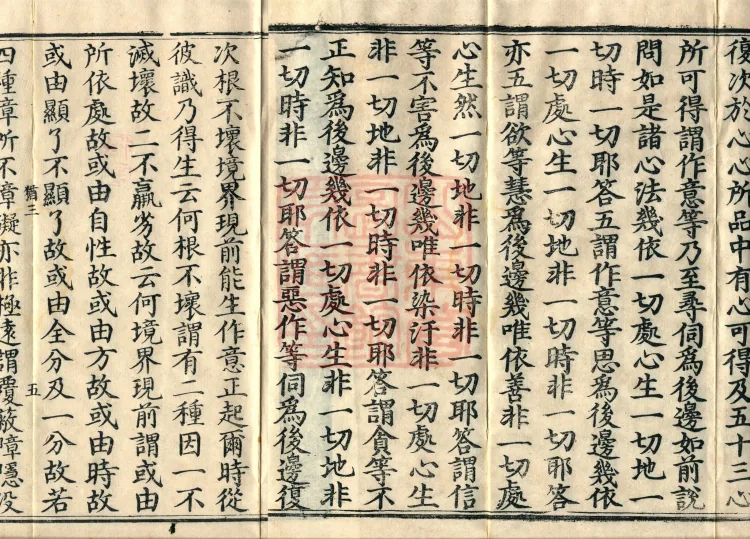 復次於心心所品中有心可得及五十三心
所可得謂作意等乃至尋伺爲後邊如前說
問如是諸心法幾依一切處心生一切地一
切時一切耶答五謂作意等思爲後邊幾依
一切處心生一切地非一切時非一切耶答
亦五謂欲等慧爲後邊幾唯依善非一切處
心生然一切地非一切時非一切耶答謂信
等不害爲後邊幾唯依染汙非一切處心生
非一切地非一切時非一切耶答謂貪等不
正知爲後邊幾依一切處心生非一切地非
一切時非一切耶答謂惡作等伺爲後邊復
次根不壞境界現前能生作意正起爾時從
彼識乃得生云何根不壞謂有二種因一不
滅壞故二不羸劣故云何境界現前謂或由
所依處故或由自性故或由方故或由時故
或由顯了不顯了故或由全分及一分故若
猶三 五
四種障所不障礙亦非極遠謂覆蔽障隱沒